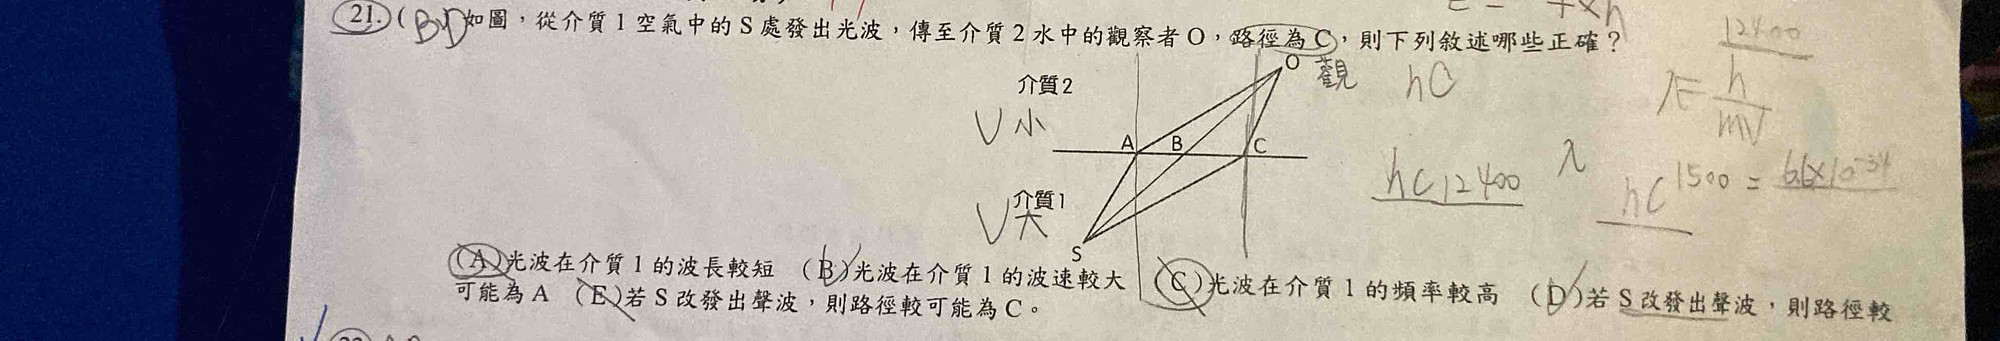 21. (BD) 如圖，從介質1空氣中的S處發出光波，傳至介質2水中的觀察者O，路徑為C，則下列敘述哪些正確？
12400
O 觀
hC
介質2
V小
λ= h/mV
A B C
hC 12400
λ
hC 1500 = 6.6×10⁻³⁴
介質1
V大
S
(A)光波在介質1的波長較短 (B)光波在介質1的波速較大 (C)光波在介質1的頻率較高 (D)若S改發出聲波，則路徑較
可能為A (E)若S改發出聲波，則路徑較可能為C。